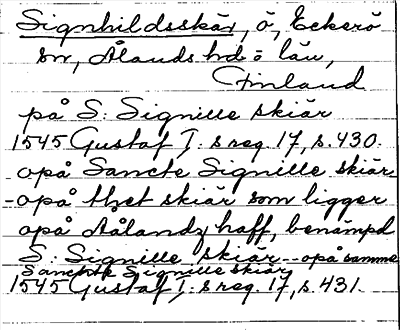 Signhildsskär, ö, Eckerö
sn, Ålands hd o län,
Finland
på S: Signille skiär
1545 Gustaf I: s reg. 17, s. 430.
opå Sancte Signille skiär
- opå thet skiär som ligger
opå Ålandz haff, benämpd
S: Signille skiär -- opå samme
Sancte Signille skiär
1545 Gustaf I: s reg. 17, s. 431.